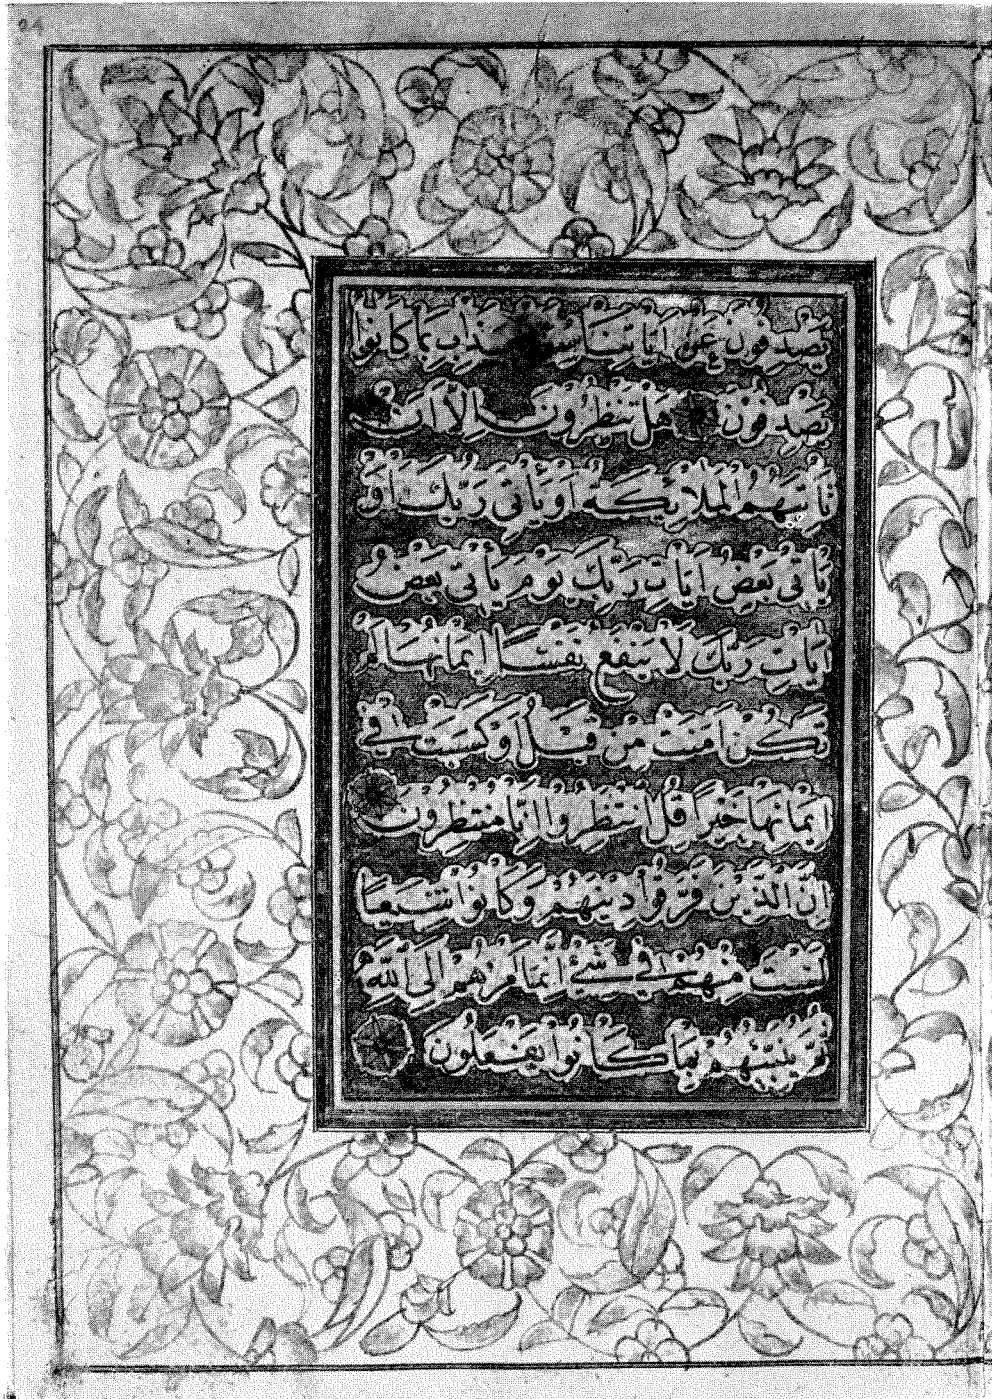 يَصْدِفُونَ عَنْ اٰيَاتِنَا بِمَا كَانُوا
يَصْدِفُونَ هَلْ يَنْظُرُونَ اِلَّا اَنْ
تَأْتِيَهُمُ الْمَلَائِكَةُ اَوْ يَأْتِىَ رَبُّكَ اَوْ
يَأْتِىَ بَعْضُ اٰيَاتِ رَبِّكَ يَوْمَ يَأْتِى بَعْضُ
اٰيَاتِ رَبِّكَ لَا يَنْفَعُ نَفْسًا اِيمَانُهَا لَمْ
تَكُنْ اٰمَنَتْ مِنْ قَبْلُ اَوْ كَسَبَتْ فِى
اِيمَانِهَا خَيْرًا قُلِ انْتَظِرُوا اِنَّا مُنْتَظِرُونَ
اِنَّ الَّذِينَ فَرَّقُوا دِينَهُمْ وَكَانُوا شِيَعًا
لَسْتَ مِنْهُمْ فِى شَىْءٍ اِنَّمَا اَمْرُهُمْ اِلَى اللّٰهِ
ثُمَّ يُنَبِّئُهُمْ بِمَا كَانُوا يَفْعَلُونَ